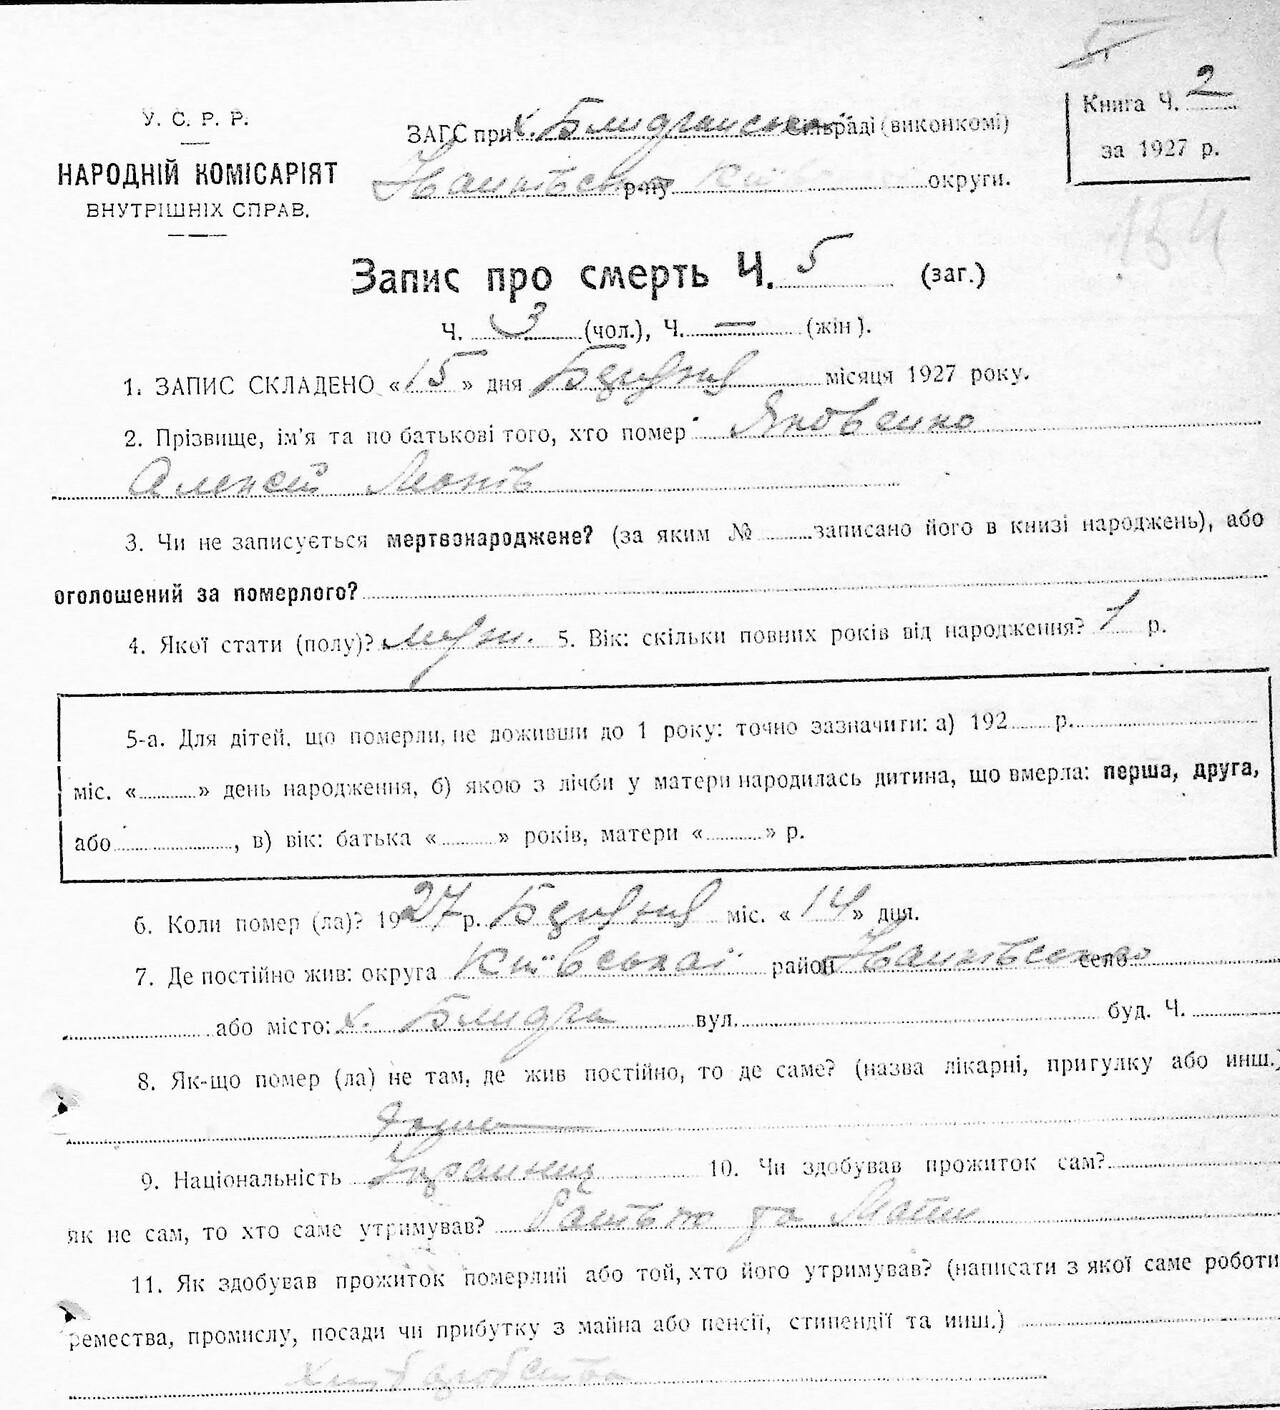 Книга Ч. 2
за 1927 р.
У. С. Р. Р.
НАРОДНІЙ КОМІСАРІЯТ
ВНУТРІШНІХ СПРАВ.
ЗАГС при х. сільраді (виконкомі)
року округи.
154
Запис про смерть Ч. 5 (заг.)
Ч. 3 (чол.), Ч. — (жін).
1. ЗАПИС СКЛАДЕНО «15» дня місяця 1927 року.
2. Прізвище, ім'я та по батькові того, хто помер Яковенко
Алексей
3. Чи не записується мертвонароджене? (за яким № записано його в книзі народжень), або
оголошений за померлого?
4. Якої стати (полу)? муж. 5. Вік: скільки повних років від народження? 1 р.
5-а. Для дітей, що померли, не доживши до 1 року: точно зазначити: а) 192 р.
міс. « » день народження, б) якою з лічби у матери народилась дитина, що вмерла: перша, друга,
або , в) вік: батька « » років, матери « » р.
6. Коли помер (ла)? 1927 р. міс. «14» дня.
7. Де постійно жив: округа Київської район село
або місто: х. вул. буд. Ч.
8. Як-що помер (ла) не там, де жив постійно, то де саме? (назва лікарні, пригулку або инш.)
9. Національність Українец 10. Чи здобував прожиток сам?
як не сам, то хто саме утримував? Батько та Мати
11. Як здобував прожиток померлий або той, хто його утримував? (написати з якої саме роботи
ремества, промислу, посади чи прибутку з майна або пенсії, стипендії та инш.)
хліборобство